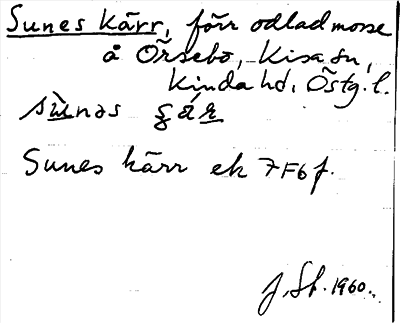 Sunes kärr, förr odlad mosse
å Örsebo, Kisa sn,
Kinda hd, Östg. l.
Sunes kärr ek 7F6f.
J. St. 1960.